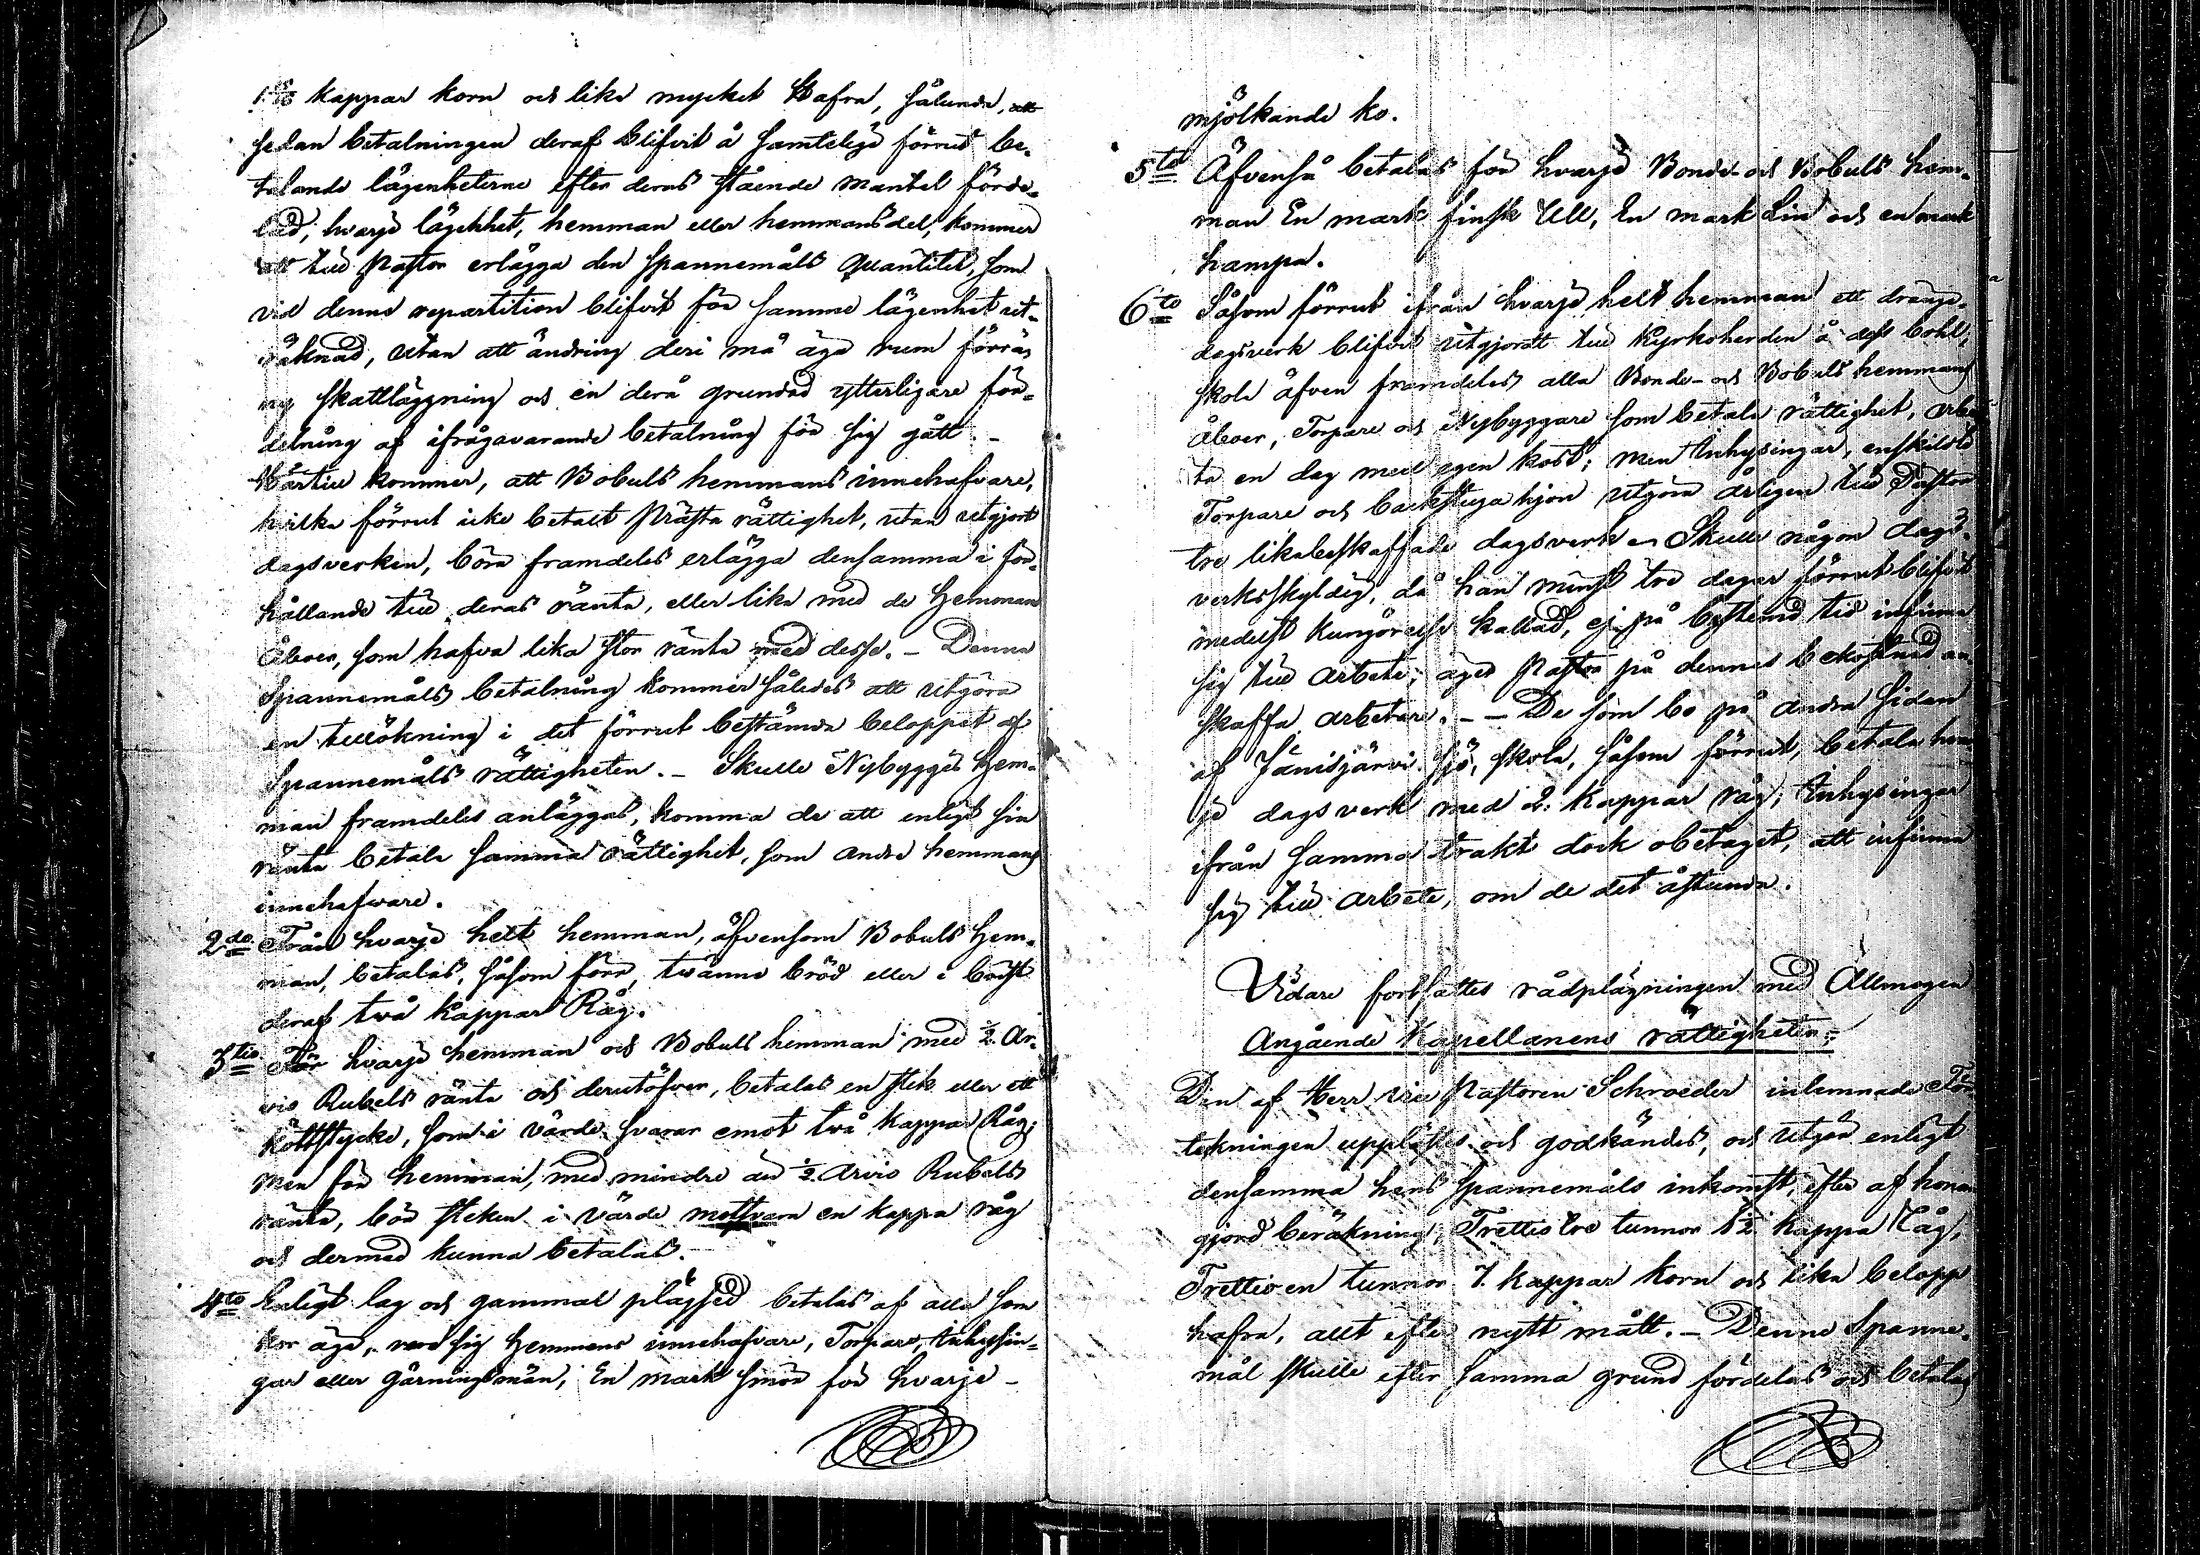 kappar korn och lika mycket Hafra, sålunda, att
sedan betalningen deraf blifvit å samtelige förrut be-
talande lägenheterne efter deras stående mantal förde-
lad, hvarje lägenhet, hemman eller hemmansdel, kommer
att till Pastor erlägga den Spannemåls Quantitet, som
vid denna repartition blifvit för samma lägenhet ut-
räknad, utan att ändring deri må äga rum förrän
ny skattläggning och en derå grundad ytterligare för-
delning af ifrågavarande betalning för sig gått. -
Härtill kommer, att Bobuls hemmans innehafvare,
hvilka förrut icke betalt Prästa rättighet, utan utgjort
dagsverken, böra framdeles erlägga densamma i för-
hållande till deras ränta, eller lika med de Hemman
Åboer, som hafva lika stor ränta med desse. - Denna
Spannemåls betalning kommer således att utgöra
en tillökning i det förrut bestämda beloppet af
Spannemåls rättigheten. - Skulle Nybygges Hem-
man framdeles anläggas, komma de att enligt sin
ränta betala samma rättighet, som andre hemmans
innehafware.
2do Från hvarje helt hemman, äfvensom Bobuls Hem-
man, betalas, såsom förr, tvänne bröd eller i brist
deraf två kappar Råg.
3tio För hvarje hemman och Bobuls hemman med ½ Ar-
vio Rubels ränta och derutöfver, betalas en stek eller ett
köttstycke, som i värde svarar emot två kappar Råg;
men för hemman, med mindre än ½ Arvio Rubels
ränta, bör steken i värde motsvara en kappa råg
och dermed kunna betalas.
4to Enligt lag och gammal plägsed betalas af alla som
kor äga, vare sig Hemmans innehafvare, Torpare, Inhysin-
gar eller gärningsmän, En mark smör för hvarje -
mjölkande ko.
5to Äfvenså betalas för hvarje Bonde- och Bobuls hem-
man En mark finsk Ull, En mark Lin och en mark
hampa.
6to Såsom förrut ifrån hvarje helt hemman ett drängs-
dagsverk blifvit utgjordt till Kyrkoherden å dess bohl,
skola äfven framdeles alla Bonde- och Bobuls hemmans
Åboer, Torpare och Nybyggare som betala rättighet, arbe-
ta en dag med egen kost; men Inhysingar, enskilde
Torpare och backstuga hjon utgöra årligen till Pastor
tre likabeskaffade dagsverk. Skulle någon dags-
verksskyldig, då han minst tre dagar förrut blifvit
medelst kungörelse kallad, ej på bestemd tid infinna
sig till arbete; äger Pastor på dennes bekostnad an-
skaffa arbetare. - - De som bo på andra sidan
af Jänisjärvi Sjö, skola, såsom förrut, betala hvar-
je dagsverk med 2. Kappar råg; Inhysingar
ifrån samma trakt dock obetaget, att infinna
sig till arbete, om de det åstunda.
Vidare fortsattes rådplägningen med Allmogen
Angående Kapellanens rättigheter:
Den af Herr vice Pastoren Schroeder inlemnade För-
teckningen upplästes och godkändes, och utgör enligt
densamma hans Spannemåls inkomst, efter af honom
gjord beräkning, Trettio tre tunnor kappa Råg,
Trettio en tunnor 7. kappar korn och lika belopp
hafra, allt efter nytt mått. - Denna Spanne-
mål skulle efter samma grund fördelas och betalas